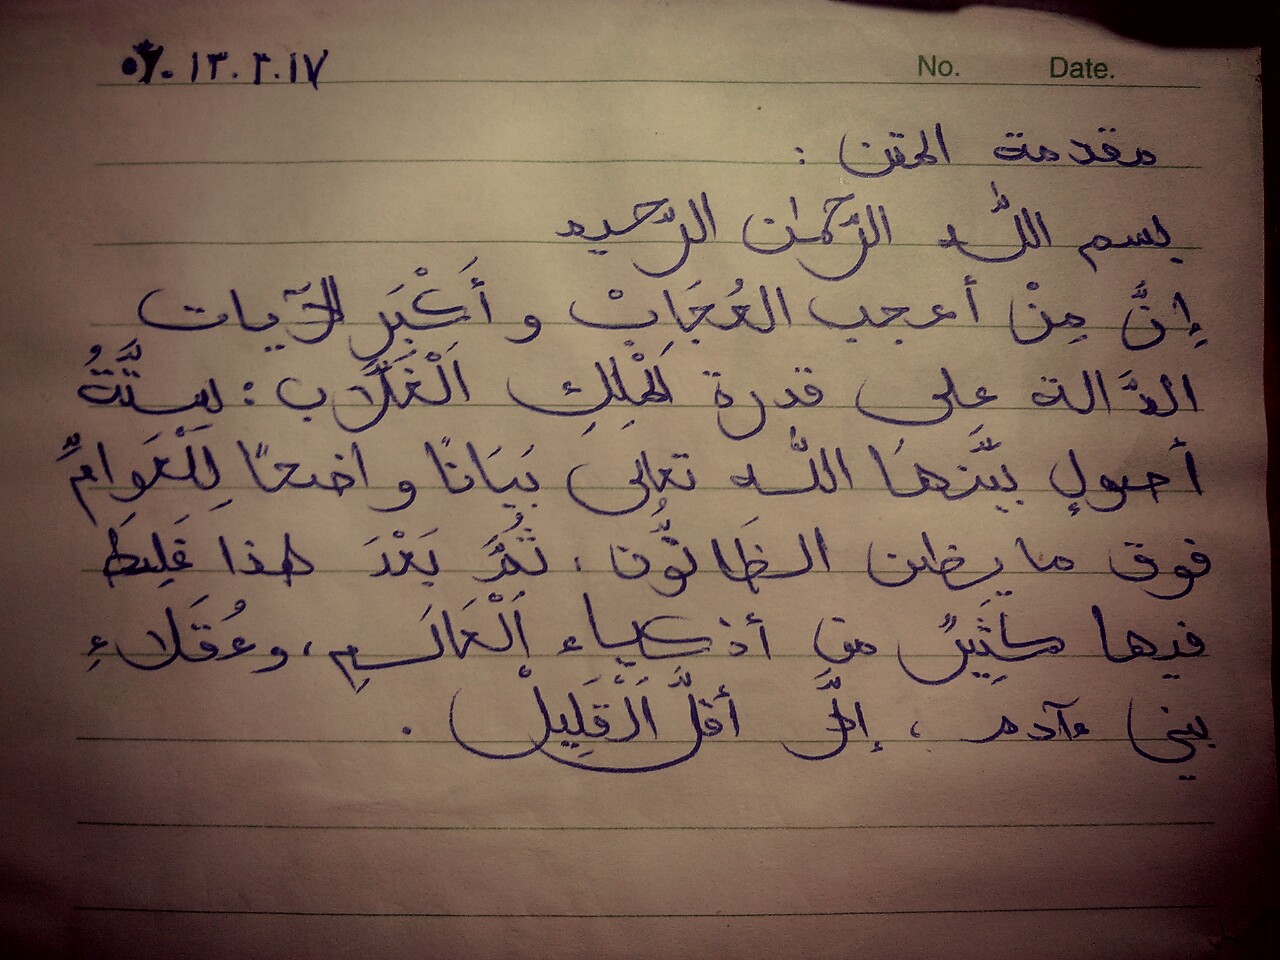 No. Date.
مقدمة المتن :
بسم اللّه الرّحمٰن الرّحيم
إِنَّ مِنْ أعجب العُجَابْ و أَكْبَرِ الآيات
الدَّالة على قدرة المَلِكِ اَلْغَلَّاب : سِتَّةُ
أصولٍ بيَّنهَا اللّه تعالى بَيَانًا واضحًا لِلْعَوامِّ
فوق ما يظن الظانُّون ، ثُمَّ بَعْدَ هذا غَلِطَ
فيها كَثِيرٌ من أذكياء اَلْعَالَمِ ، وعُقَلاءِ
بني ءآدم ، إلَّا أقلَّ اَلْقَلِيلْ .